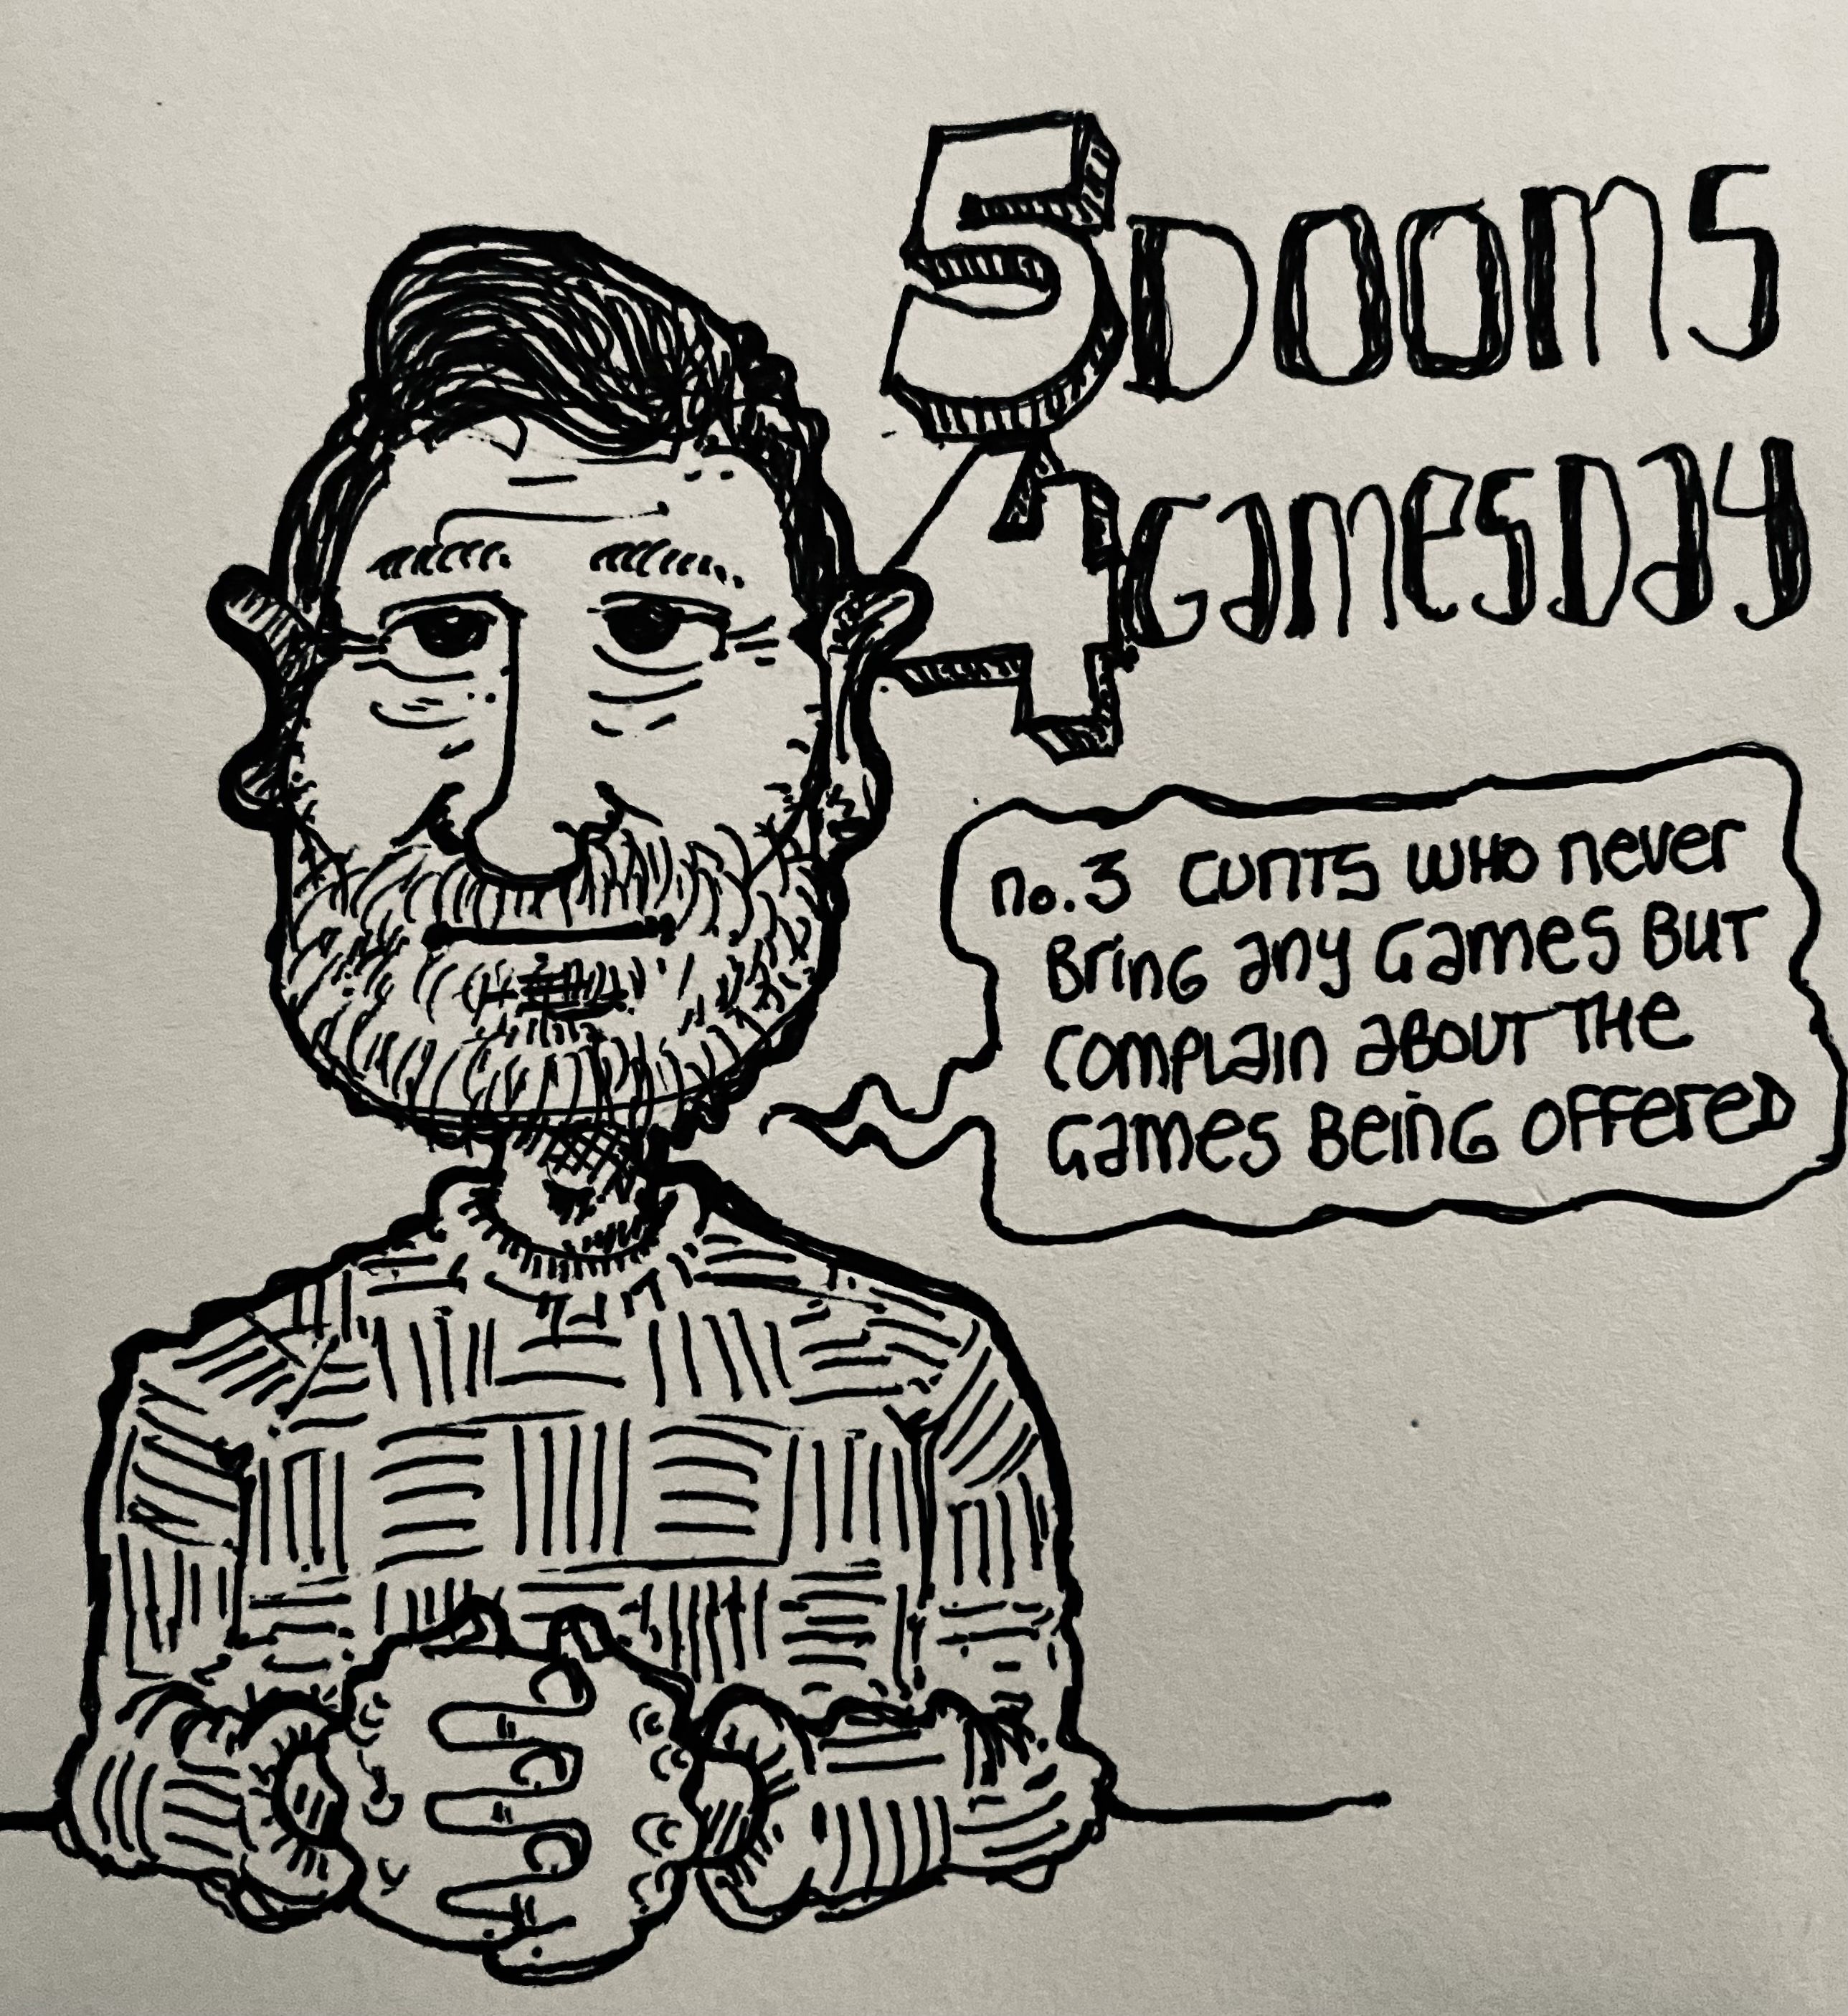 5 DOOMS
4 GamesDay
no.3 CUNTS WHO never
BrinG any Games BUT
COMPLain aBOUT THe
Games BeinG OFFereD